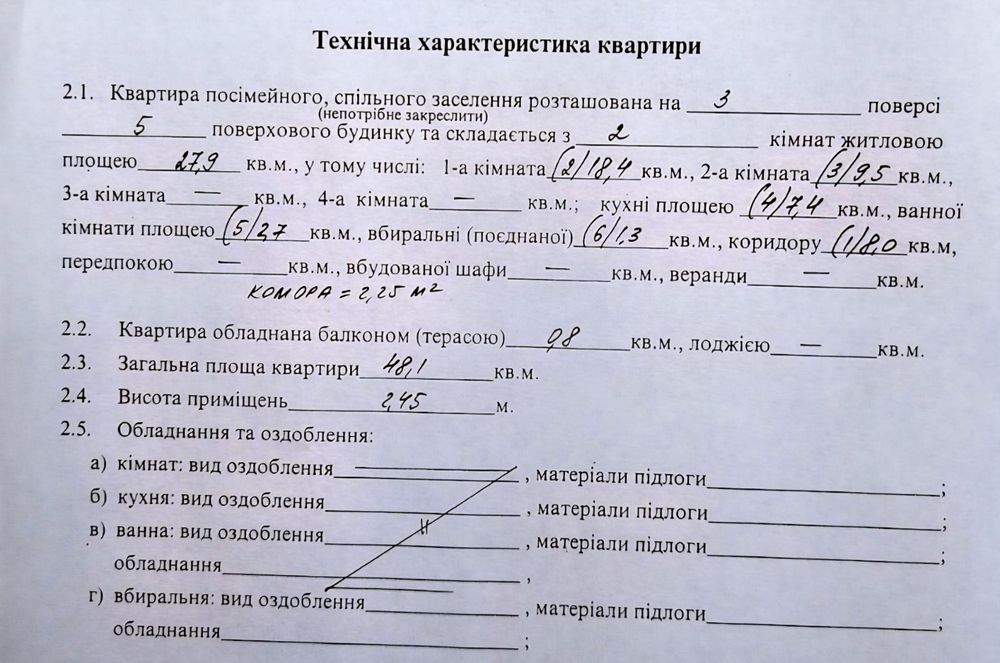 Технічна характеристика квартири
2.1. Квартира посімейного, спільного заселення розташована на 3 поверсі
(непотрібне закреслити)
5 поверхового будинку та складається з 2 кімнат житловою
площею 27,9 кв.м., у тому числі: 1-а кімната (2/18,4 кв.м., 2-а кімната (3/9,5 кв.м.,
3-а кімната — кв.м., 4-а кімната — кв.м.; кухні площею (4/7,4 кв.м., ванної
кімнати площею (5/2,7 кв.м., вбиральні (поєднаної) (6/1,3 кв.м., коридору (1/8,0 кв.м,
передпокою — кв.м., вбудованої шафи — кв.м., веранди — кв.м.
КОМОРА = 2,25 м²
2.2. Квартира обладнана балконом (терасою) 0,8 кв.м., лоджією — кв.м.
2.3. Загальна площа квартири 48,1 кв.м.
2.4. Висота приміщень 2,45 м.
2.5. Обладнання та оздоблення:
а) кімнат: вид оздоблення , матеріали підлоги ;
б) кухня: вид оздоблення , матеріали підлоги ;
в) ванна: вид оздоблення , матеріали підлоги ;
обладнання ,
г) вбиральня: вид оздоблення , матеріали підлоги ;
обладнання ;